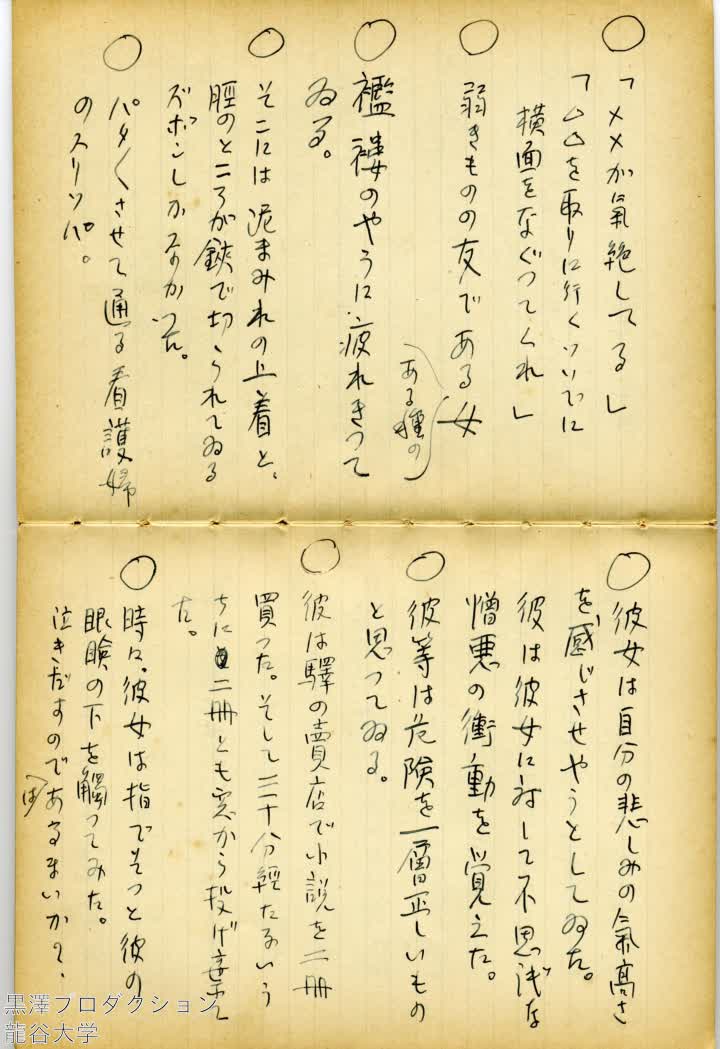 ○「××が氣絶してる」
「△△を取りに行くついでに
横面をなぐつてくれ」
○弱きものの友である女
(ある種の)
○襤褸のやうに疲れきつて
ゐる。
○そこには泥まみれの上着と、
脛のところが鋏で切られてゐる
ズボンしかなかつた。
○パタ〱させて通る看護婦
のスリッパ。
○彼女は自分の悲しみの氣高さ
を感じさせやうとしてゐた。
彼は彼女に対して不思議な
憎悪の衝動を覚えた。
○彼等は危険を一層正しいもの
と思つてゐる。
○彼は驛の賣店で小説を二冊
買つた。そして三十分經たないう
ちに二冊とも窓から投げ棄て
た。
○時々。彼女は指でそつと彼の
眼瞼の下を觸つてみた。
泣きだすのであるまいか?、
黒澤プロダクション
龍谷大学